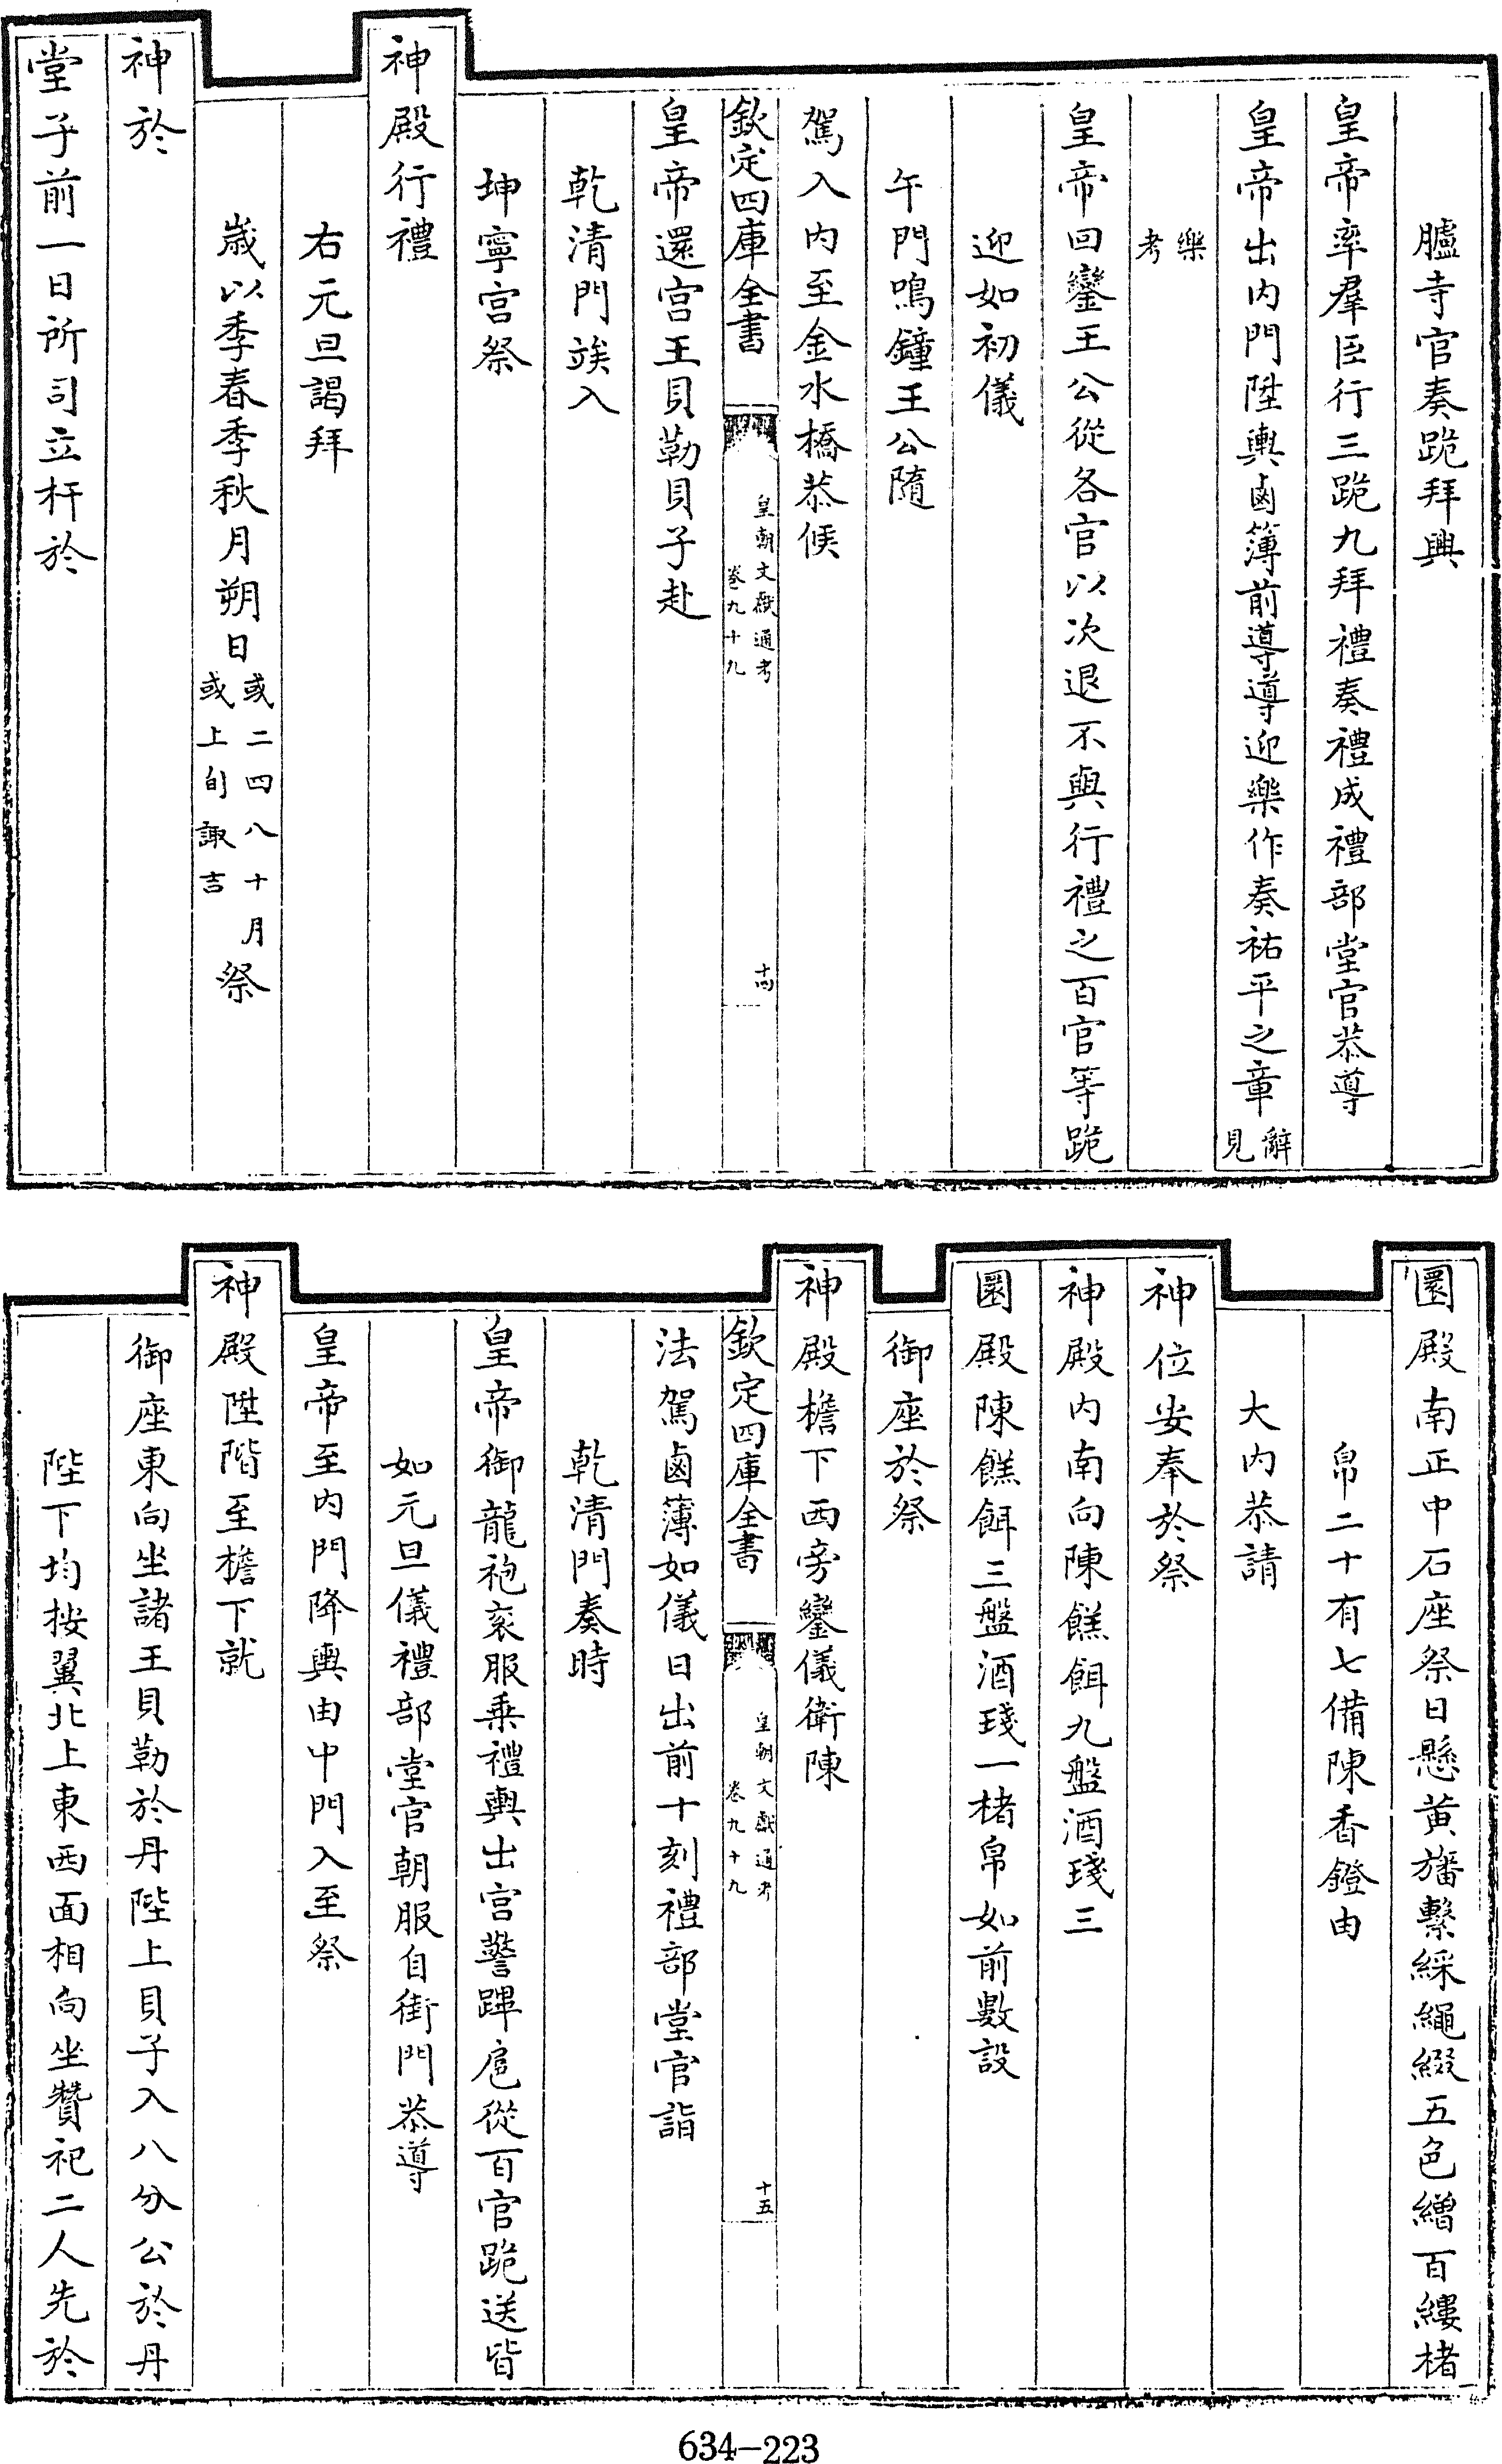 臚寺官奏跪拜興
皇帝率羣臣行三跪九拜禮奏禮成禮部堂官恭導
皇帝出内門陞輿鹵簿前導導迎樂作奏祐平之章辭見
樂考
皇帝回鑾王公從各官以次退不與行禮之百官等跪
迎如初儀
午門鳴鐘王公隨
駕入内至金水橋恭候
欽定四庫全書
皇朝文獻通考
卷九十九
十四
皇帝還宫王貝勒貝子赴
乾清門竢入
坤寧宫祭
神殿行禮
右元旦謁拜
歲以季春季秋月朔日或二四八十月或上旬諏吉祭
神於
堂子前一日所司立杆於
圜殿南正中石座祭日懸黄旛繫綵繩綴五色繒百縷楮
帛二十有七備陳香鐙由
大内恭請
神位安奉於祭
神殿内南向陳餻餌九盤酒琖三
圜殿陳餻餌三盤酒琖一楮帛如前數設
御座於祭
神殿檐下西旁鑾儀衛陳
欽定四庫全書
皇朝文獻通考
卷九十九
十五
法駕鹵簿如儀日出前十刻禮部堂官詣
乾清門奏時
皇帝御龍袍衮服乗禮輿出宫警蹕扈從百官跪送皆
如元旦儀禮部堂官朝服自街門恭導
皇帝至内門降輿由中門入至祭
神殿陞階至檐下就
御座東向坐諸王貝勒於丹陛上貝子入八分公於丹
陛下均按翼北上東西面相向坐贊祀二人先於
634-223